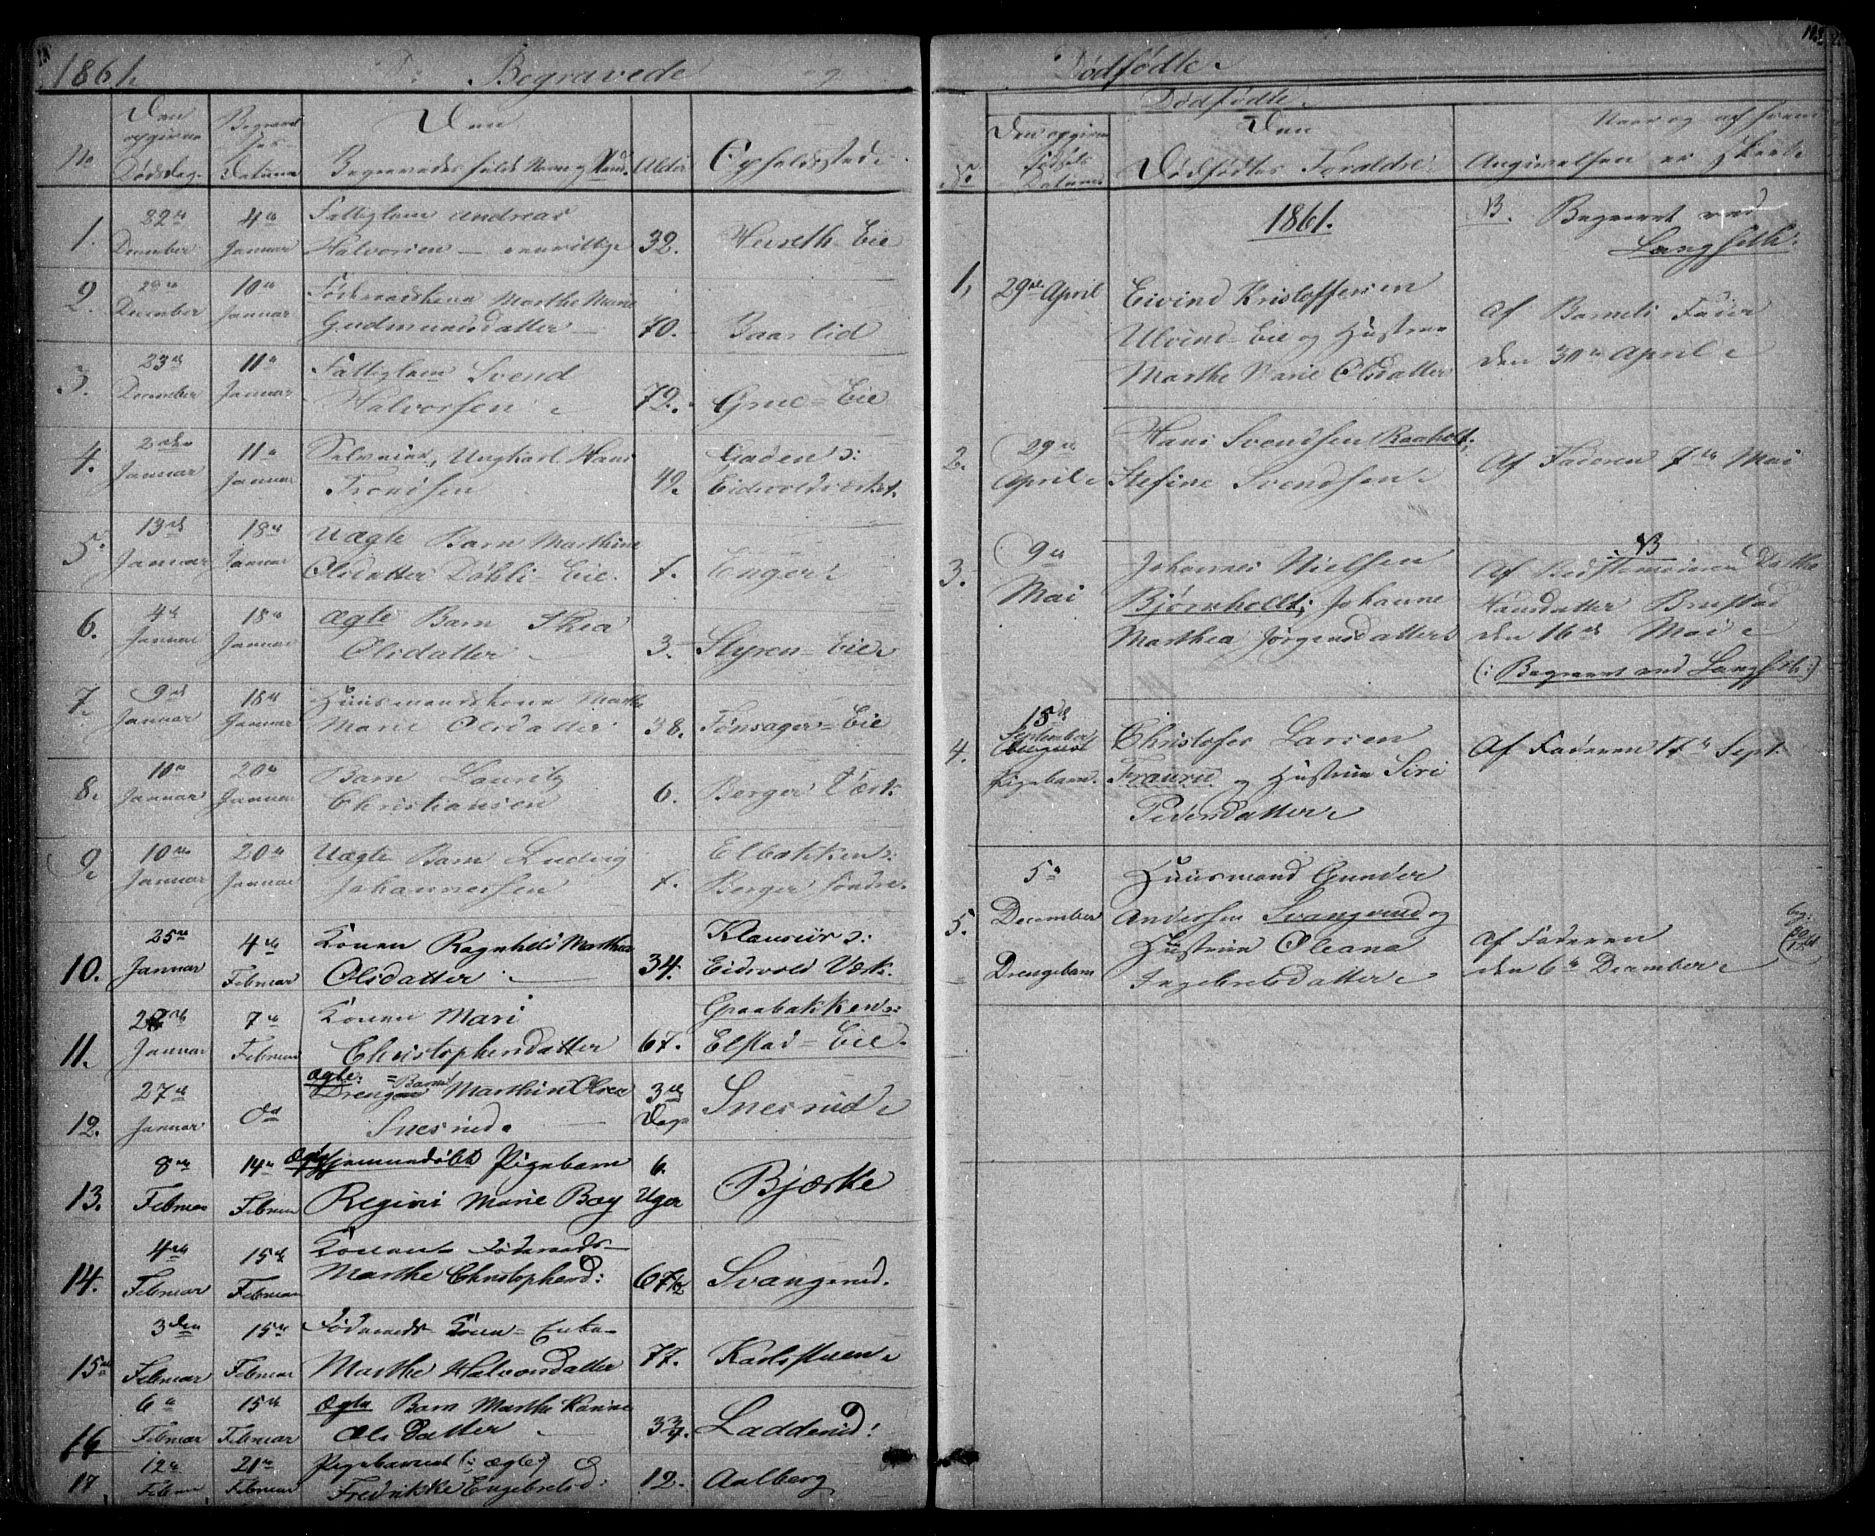 1861.
Begravede og
No
Den opgivne Dødsdag.
Begravelses Datum
Den Begravedes fulde Navn og Stand.
Alder
Opholdssted.
1. 22de December 4de Januar Fattiglem Andreas Halvorsen — 32. Huseth Eie
2. December 10de Januar Føderaadskone Marthe Marie Gudmundsdatter — 70. Baarlid
3. 23de December 11te Januar Fattiglem Svend Halvorsen 72. Grue-Eie
4. 2den Januar 11te Januar Ungkarl Hans Trondsen 49. Gaden: Eidsvoldværket.
5. 13de Januar 18de Januar Uægte Barn Marthine Olsdatter Døhli-Eie. Enger
6. 4de Januar 18de Januar Ægte Barn Thea Olsdatter 3. Styren-Eie
7. 9de Januar 18de Januar Huusmandskone Marthe Marie Olsdatter 38. Tønsager-Eie
8. 10de Januar 20de Januar Barn Lauritz Christiansen 6. Berger Værk.
9. 10de Januar 20de Januar Uægte Barn Ludvig Johannessen Elbakken: Berger Søndre.
10. 25de Januar 4de Februar Konen Ragnhild Marthea Olsdatter 34. Klausür: Eidsvold Værk.
11. Januar 7de Februar Konen Mari Christophersdatter 67. Graabakken: Elstad-Eie.
12. 27de Januar Ægte: Barn Marthin Olsen Snesrud. 3de Dage Snesrud
13. 8de Februar 14de Februar Ægte Pigebarn Regini Marie Boy 6. Uger Bjørke
14. 4de Februar 15de Februar Konen Føderaads- Marthe Christophersd: 67 1/2 Svangerud.
15. 3den Februar 15de Februar Føderaads Kone-Enke- Marthe Halvorsdatter 77. Karlstuen
16 6te Februar 15de Februar Ægte Barn Marthe Karine Olsdatter 3 3/4. Ladderud!
17 12te Februar 21de Februar Pigebarnet (: ægte :) Fredrikke Engebretsd: 12. Aalberg
Dødfødte.
Dødfødte.
No.
Den opgivne Fødsels Datum
Den Dødfødtes Forældre.
Naar og af hvem Angivelsen er skeet.
1861.
NB. Begravet ved Langseth.
1, 29de April Eivind Kristoffersen Ulvind-Eie og Hustru Marthe Marie Olsdatter Af Barnets Fader den 30te April
2. 29de April Hans Svendsen Raaholt; Stefine Svendsen Af Faderen 7de Mai
3. 9de Mai Johannes Nielsen Bjørnholt; Johanne Marthea Jørgensdatter NB Af Bedstemoderen Hansdatter Brustad den 16de Mai (: Begravet ved Langseth :)
4. 15de September August Pigebarn. Christofer Larsen Traurud og Hustru Siri Pedersdatter Af Faderen 17de Sept.
5. 5te December Drengebarn Huusmand Gunder Andersen Svangerud og Hustru Oleana Ingebretsdatter Af Faderen den 6te December